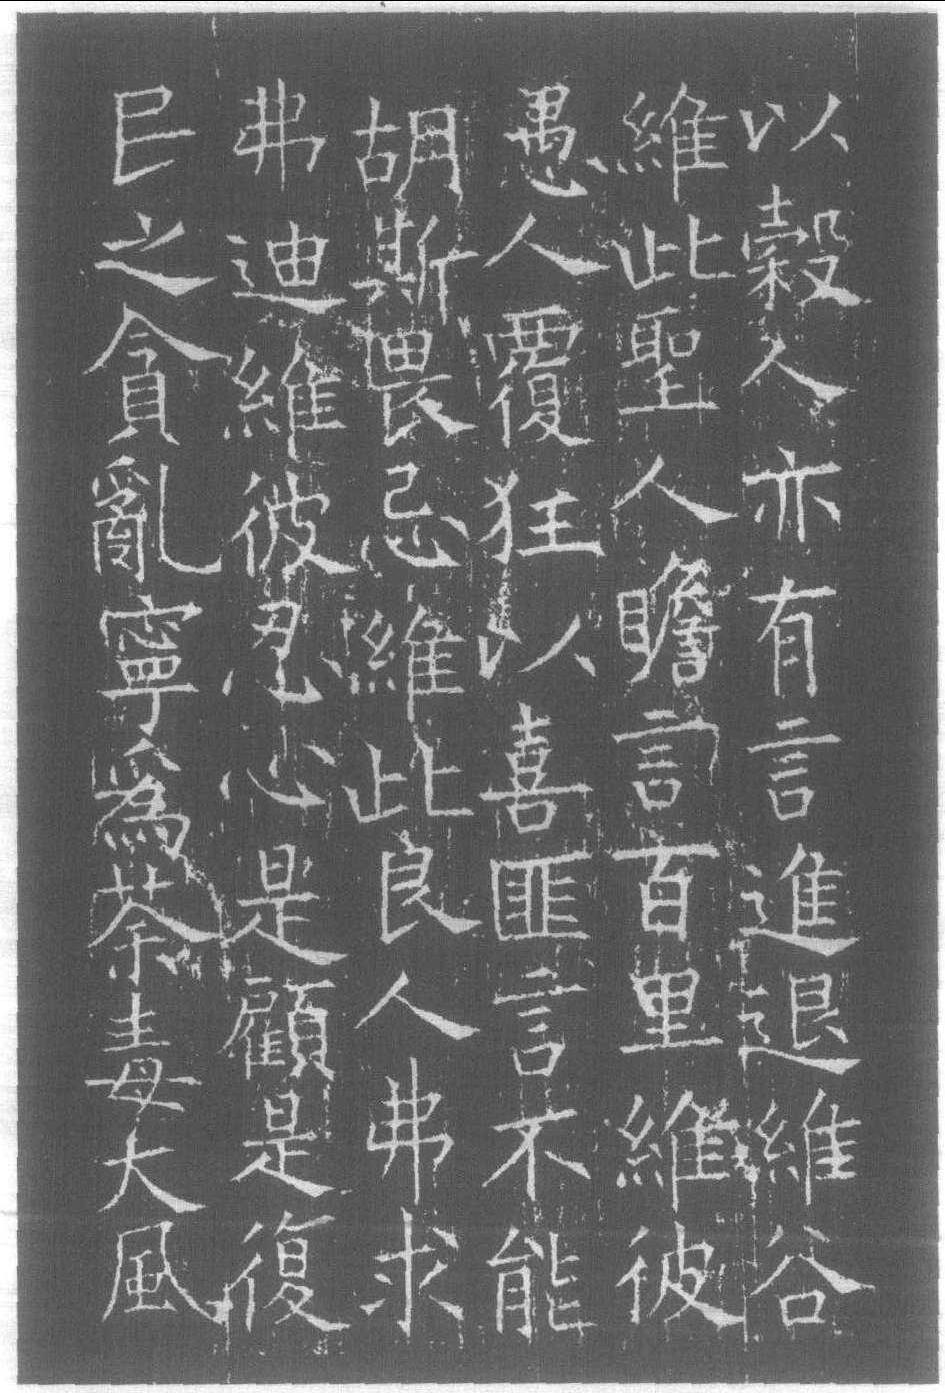 以穀人亦有言進退維谷
維此聖人瞻言百里維彼
愚人覆狂以喜匪言不能
胡斯畏忌維此良人弗求
弗迪維彼忍心是顧是復
民之貪亂寧爲荼毒大風